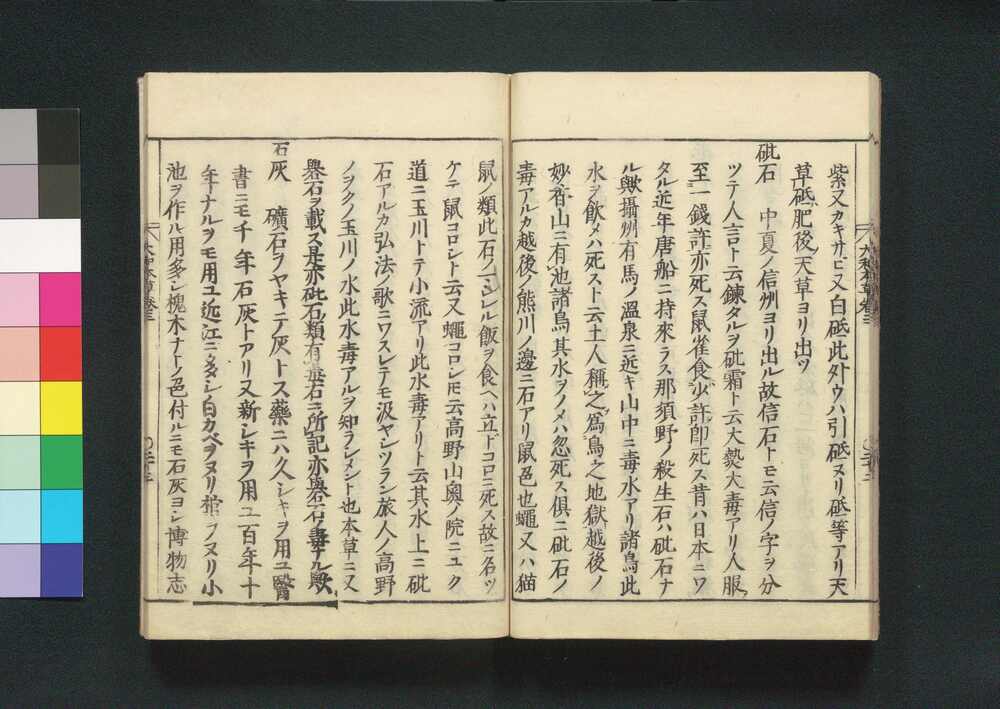 紫又カキサビ又白砥此外ウハ引砥ヌリ砥等アリ天
草砥肥後天草ヨリ出ツ
砒石 中夏ノ信州ヨリ出ル故信石トモ云信ノ字ヲ分
ツテ人言ト云錬タルヲ砒霜ト云大熱大毒アリ人服
至一錢許亦死ス鼠雀食少許即死ス昔ハ日本ニワ
タル近年唐船ニ持來ラス那須野ノ殺生石ハ砒石ナ
ル歟攝州有馬ノ温泉ニ近キ山中ニ毒水アリ諸鳥此
水ヲ飲メハ死スト云土人稱之爲鳥之地獄越後ノ
妙香山ニ有池諸鳥其水ヲノメハ忽死ス倶ニ砒石ノ
毒アルカ越後ノ熊川ノ邊ニ石アリ鼠色也蠅又ハ猫
鼠ノ類此石ノ上シル飯ヲ食ヘハ立ドコロニ死ス故ニ名ツ
ケテ鼠コロシト云又蠅コロシトモ云高野山奥ノ院ニユク
道ニ玉川トテ小流アリ此水毒アリト云其水上ニ砒
石アルカ弘法ノ歌ニワスレテモ汲ヤシツラン旅人ノ高野
ノヲクノ玉川ノ水此水毒アルヲ知ラシメント也本草ニ又
礜石ヲ載ス是亦砒石類有毒石ニ所記亦礜石ノ毒ナル歟
石灰 礦石ヲヤキテ灰トス藥ニハ久シキヲ用ユ醫
書ニモ千年石灰トアリ又新シキヲ用ユ百年十
年ナルヲモ用ユ近江ニ多シ白カベヲヌリ棺ヲヌリ小
池ヲ作ル用多シ槐木ナトノ色付ルニモ石灰ヨシ博物志